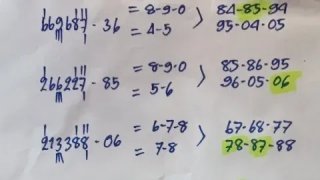 669687 - 36 = 8-9-0 > 84-85-94
= 4-5 95-04-05
266227 - 85 = 8-9-0 > 85-86-95
= 5-6 96-05-06
213388 - 06 = 6-7-8 > 67-68-77
= 7-8 78-87-88